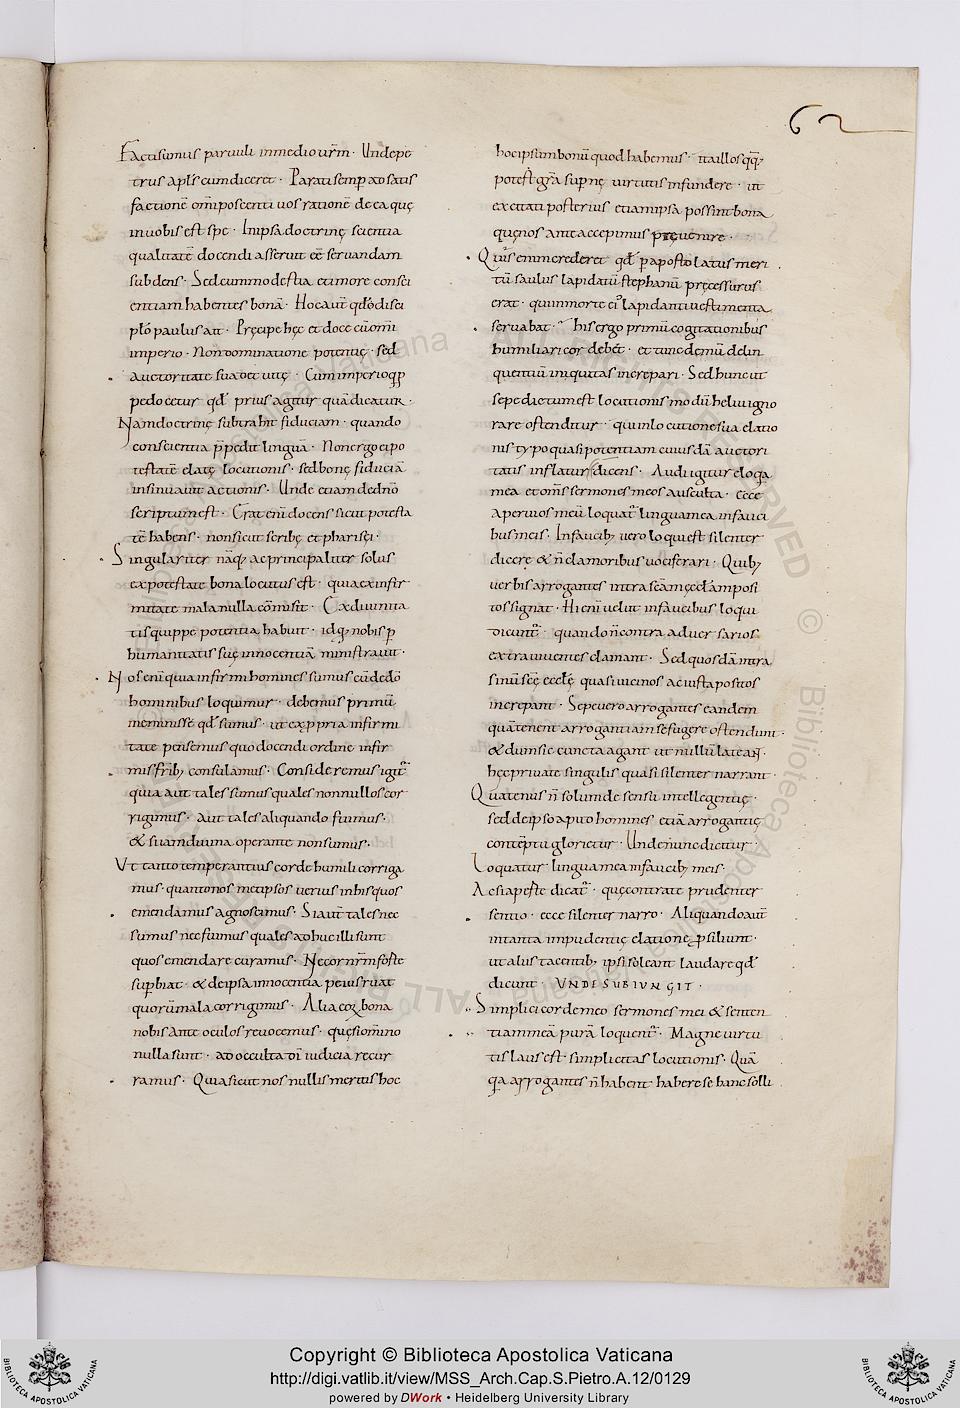 62
Facti sumus parvuli in medio vr̄m · Unde pe
trus apl's cum diceret · Parati semp̄ ad satis
factionē om̄i poscenti vos rationē de ea quę
in vobis est spe · In ipsa doctrinę scientia
qualitatē docendi asseruit eē servandam
subdens · Sed cum modestia et timore consci
entiam habentes bonā · Hoc aut̄ qd̄ discі
plo paulus ait · Pręcipe hęc et doce cū om̄i
imperio · Non dominatione potentię · sed
auctoritate suadet vitę · Cum imperio q̄pp
pe docetur qd̄ prius agitur quā dicatur ·
Nam doctrinę subtrahit fiduciam · quando
conscientia p̄pedit linguā · Non ergo ei po
testatē elatę locutionis · sed bonę fiduciā
insinuavit actionis · Unde etiam de dn̄o
scriptum est · Erat eni docens sicut potesta
tē habens · non sicut scribę et pharisęi ·
Singulariter nāq; ac principaliter solus
ex potestate bona locutus est · quia ex infir
mitate mala nulla cōmisit · Ex divinita
tis quippe potentia habuit · id q; nobis p̄
humanitatis suę innocentiā ministravit ·
Nos eni quia infirmi homines sumus cū de dō
hominibus loquimur · debemus primū
meminisse qd̄ sumus · ut ex p̄pria infirmi
tate pensemus quo docendi ordine infir
mis frīb; consulamus · Consideremus igit̄
quia aut tales sumus quales nonnullos cor
rigimus · aut tales aliquando fuimus ·
& si iam divina operante non sumus ·
Ut tanto temperantius corde humili corriga
mus · quanto nos metipsos verius in his quos
emendamus agnoscimus · Si aut̄ tales nec
sumus nec fuimus quales adhuc illi sunt
quos emendare curamus · Ne cor nr̄m forte
sup̄biat · & de ipsa innocentia peius ruat
quorū mala corrigimus · Alia eoꝝ bona
nobis ante oculos revocemus · quę si om̄ino
nulla sunt · ad occulta dī iudicia recur
ramus · Quia sicut nos nullis meritis hoc
hoc ipsum bonū quod habemus · ita illos qq;
potest gr̄a supernę virtutis infundere · ut
excitati posterius etiam ipsa possint bona
quę nos ante accepimus prevenire ·
Quis eni crederet qd̄ p̄ apostolatus meri
tū saulus lapidatū stephanū pręcessurus
erat · qui in morte ei' lapidanti vestimenta
servabat · His ergo primū cogitationibus
humiliari cor debet · et tunc demū delin
quentiū iniquitas increpari · Sed hunc ut
sepe dictum est locutionis modū heliu igno
rare ostenditur · qui in locutione sua elatio
nis typo quasi potentiam cuiusdā auctori
tatis inflatur dicens · Audi igitur eloq̄a
mea et om̄s sermones meos ausculta · ecce
aperui os meū loquat̄ lingua mea in fauci
bus meis · In faucib; vero loqui est silenter
dicere & n̄ clamoribus vociferari · Quib;
verbis arrogantes intra scām ęccłam posi
tos signat · Hi eni velut in faucibus loqui
dicunt̄ · quando n̄ contra adversarios
extra viventes clamant · Sed quosdā intra
sinū scę eccłę quasi vicinos ac iuxta positos
increpant · Sepe vero arrogantes eandem
quā tenent arrogantiam se fugere ostendunt ·
& dum sic cuncta agant ut nullū lateant ·
hęc private singulis quasi silenter narrant ·
Quatenus n̄ solum de sensu intellegentię ·
sed de ipso apud homines etiā arrogantię
contēptu glorietur · Unde nunc dicitur ·
Loquatur lingua mea in faucib; meis ·
Ac si aperte dicat̄ · quę contra te prudenter
sentio · ecce silenter narro · Aliquando aut̄
in tanta impudentię elatione p̄siliunt ·
ut alius tacentib; ipsi soleant laudare qd̄
dicunt · UNDE SUBIUNGIT ·
Simplici corde meo sermones mei & senten
tiam meā purā loquent̄ · Magne virtu
tis laus est simplicitas locutionis · Quā
q̄a arrogantes n̄ habent habere se hanc solli
Copyright © Biblioteca Apostolica Vaticana
http://digi.vatlib.it/view/MSS_Arch.Cap.S.Pietro.A.12/0129
powered by DWork • Heidelberg University Library